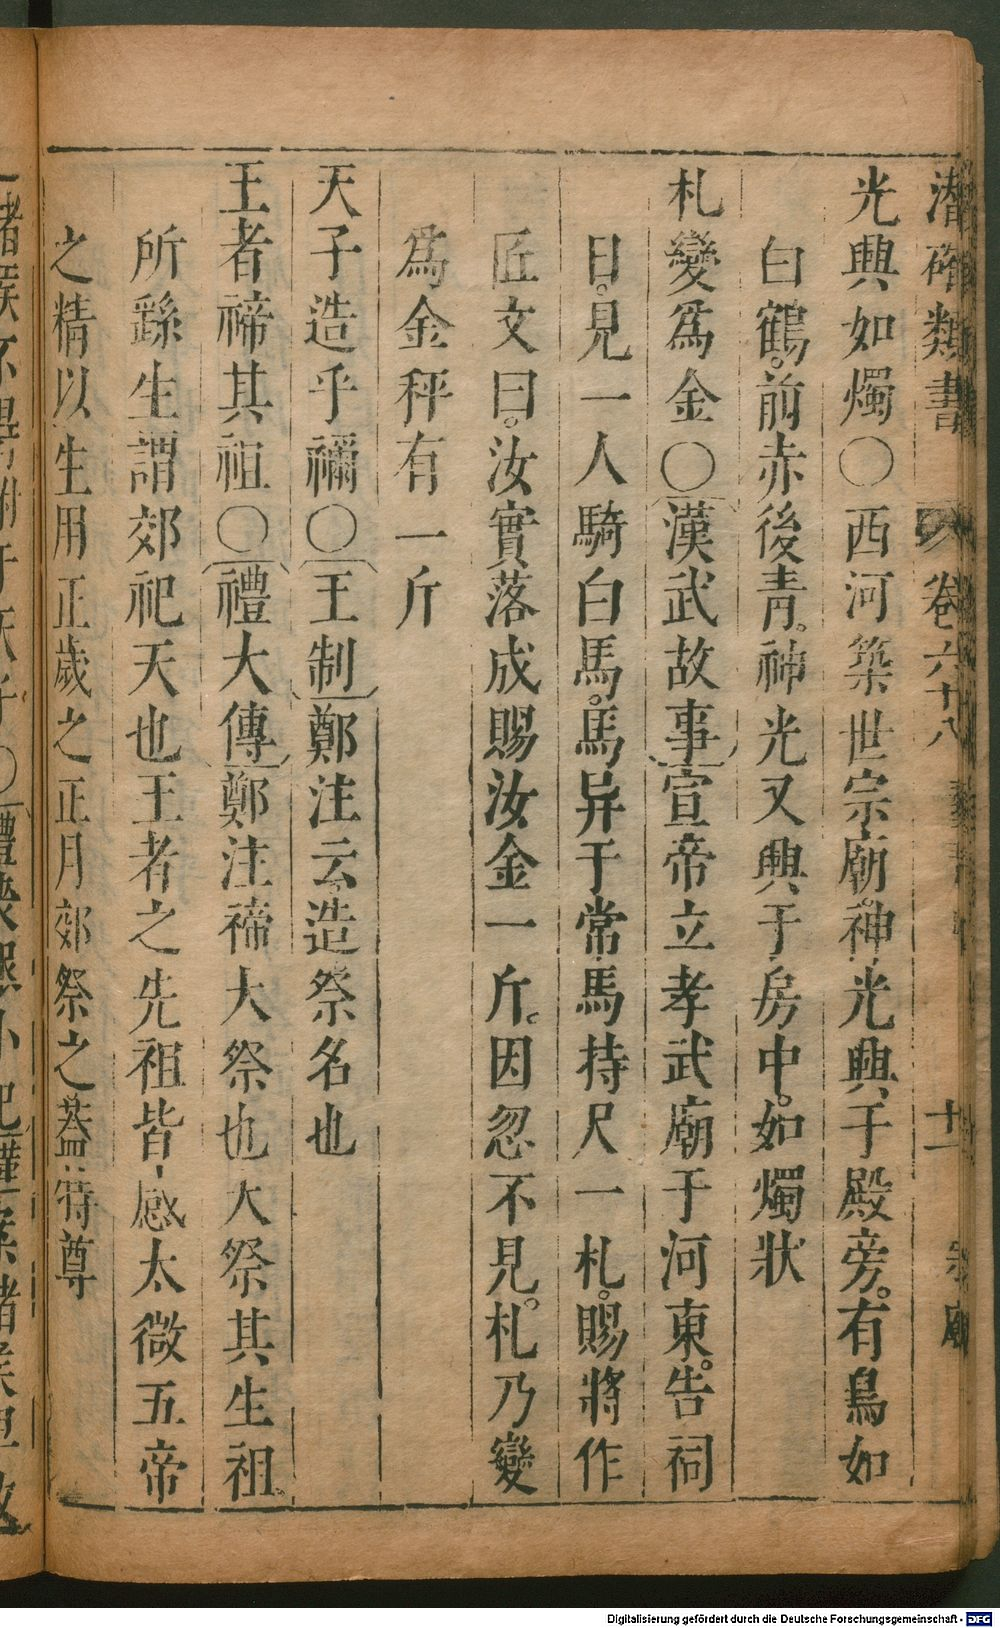 潛確類書 卷六十八 藝習 十一 宗廟
光興如燭〇西河築世宗廟神光興于殿旁有鳥如
白鶴前赤後青神光又興于房中如燭狀
札變爲金〇漢武故事宣帝立孝武廟于河東告祠
日見一人騎白馬馬异于常馬持尺一札賜將作
匠文曰汝實落成賜汝金一斤因忽不見札乃變
爲金秤有一斤
天子造乎禰〇王制鄭注云造祭名也
王者禘其祖〇禮大傳鄭注禘大祭也大祭其生祖
所繇生謂郊祀天也王者之先祖皆感太微五帝
之精以生用正歲之正月郊祭之葢特尊
Digitalisierung gefördert durch die Deutsche Forschungsgemeinschaft - DFG